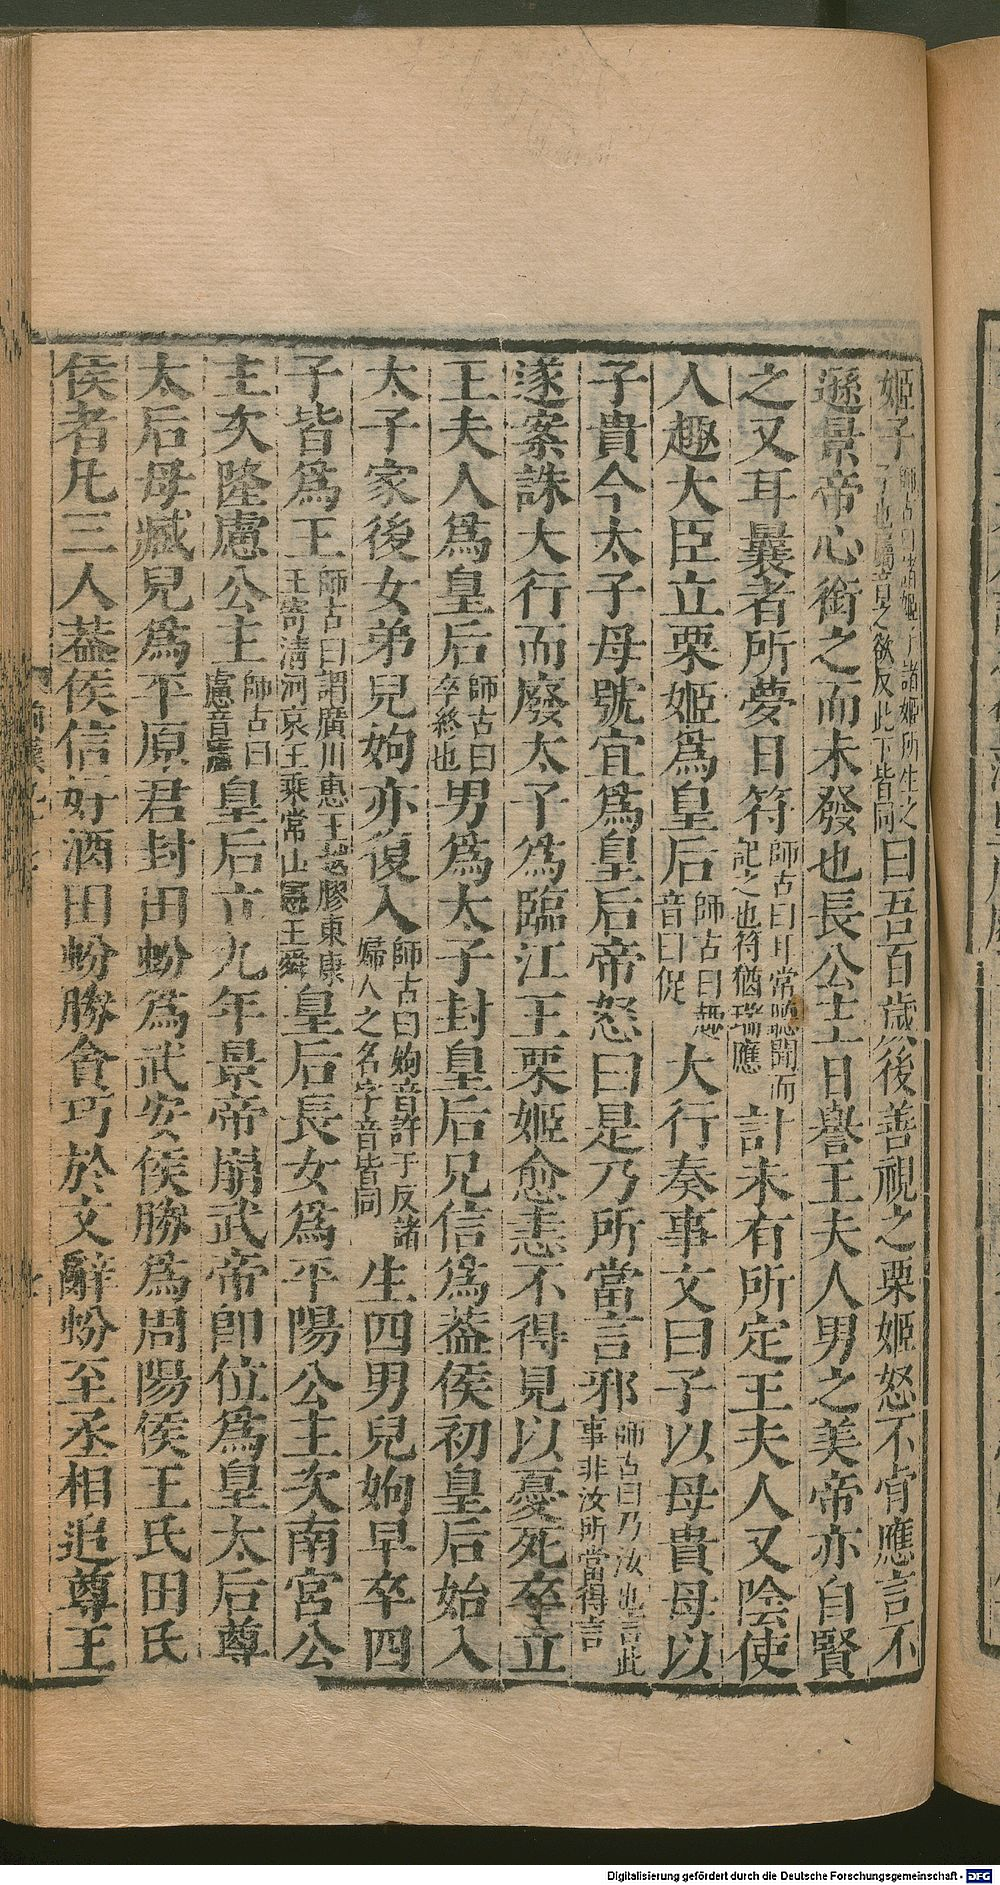 姬子師古曰諸姬子諸姬所生之子也屬音之欲反此下皆同曰吾百歲後善視之栗姬怒不肯應言不
遜景帝心銜之而未發也長公主日譽王夫人男之美帝亦自賢
之又耳曩者所夢日符師古曰耳常聽聞而記之也符猶瑞應計未有所定王夫人又陰使
人趣大臣立栗姬爲皇后師古曰趣音曰促大行奏事文曰子以母貴母以
子貴今太子母號宜爲皇后帝怒曰是乃所當言邪師古曰乃汝也言此事非汝所當得言
遂案誅大行而廢太子爲臨江王栗姬愈恚不得見以憂死卒立
王夫人爲皇后師古曰卒終也男爲太子封皇后兄信爲蓋侯初皇后始入
太子家後女弟兒姁亦復入師古曰姁音許于反諸婦人之名字音皆同生四男兒姁早卒四
子皆爲王師古曰謂廣川惠王越膠東康王寄清河哀王乘常山憲王舜皇后長女爲平陽公主次南宮公
主次隆慮公主師古曰慮音廬皇后立九年景帝崩武帝卽位爲皇太后尊
太后母臧兒爲平原君封田蚡爲武安侯勝爲周陽侯王氏田氏
侯者凡三人蓋侯信好酒田蚡勝貪巧於文辭蚡至丞相追尊王
Digitalisierung gefördert durch die Deutsche Forschungsgemeinschaft - DFG